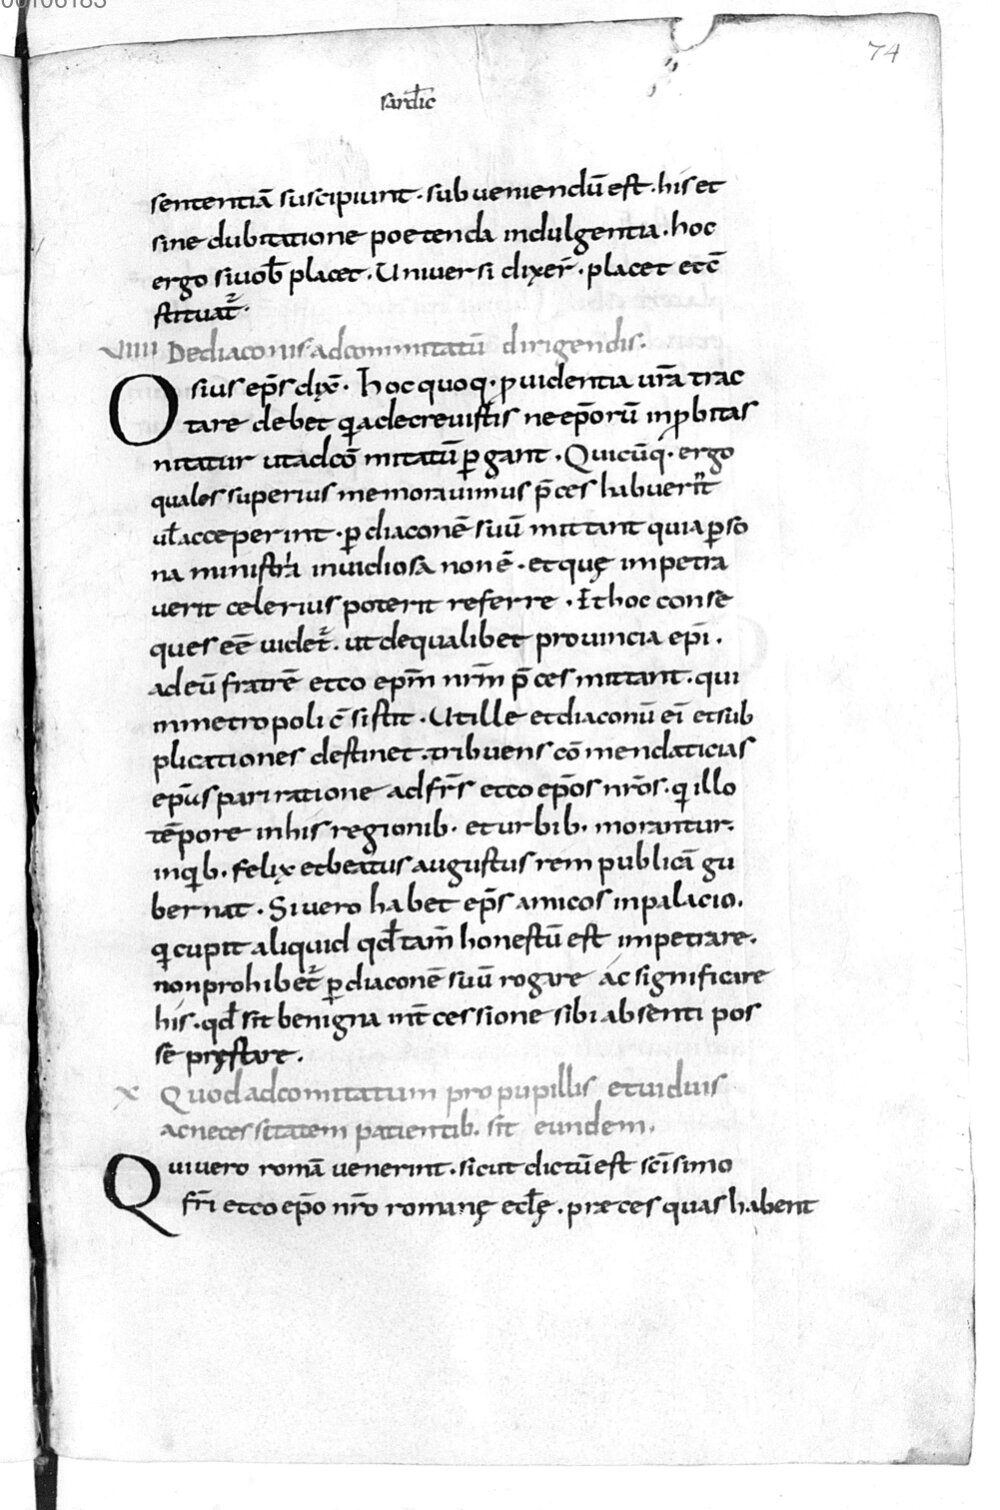 00106183
74
sard̅ic
sententiā suscipiunt · subueniendū est · his et
sine dubitatione poetenda indulgentia · hoc
ergo si uob̅ placet · Uniuersi dixer̅ · placet et c̅
stituat̅ ·
VIIII De diaconis ad commitatū dirigendis.
Osius ep̅s dix̅ · Hoc quoq · ꝓuidentia ur̅a trac
tare debet qa decreuistis ne ep̅orū inꝓbitas
nitatur ut ad cō mitatū ꝑgant · Quicūq · ergo
quales superius memorauimus p̅ces habuerint
ul̅ acceperint · ꝑ diaconē suū mittant quia ꝑso
na ministri inuidiosa non ē · et quę impetra
uerit celerius poterit referre · Et hoc conse
ques eē uidet̅ · ut de qualibet prouincia ep̅i ·
ad eū fratrē et co ep̅m nr̅m p̅ces mittant · qui
in metropoli c̅sistit · Ut ille et diaconū eī et sub
plicationes destinet · tribuens cōmendaticias
ep̅us pari ratione ad fr̅s et co ep̅os nr̅os · q illo
tēpore in his regionib · et urbib · morantur ·
in qib · felix et beatus augustus rem publicā gu
bernat · Si uero habet ep̅s amicos in palacio ·
q cupit aliquid qd̅ tam̅ honestū est impetrare ·
non prohibet̅ ꝑ diaconē suū rogare ac significare
his · qd̅ sit benigna int̅cessione sibi absenti pos
sē pręstare ·
X Quod ad comitatum pro pupillis et uiduis
ac necessitatem patientib · sit eundem ·
Qui uero romā uenerint · sicut dictū est sc̅isimo
fr̅i et co ep̅o nr̅o romanę ecl̅ę · præces quas habent